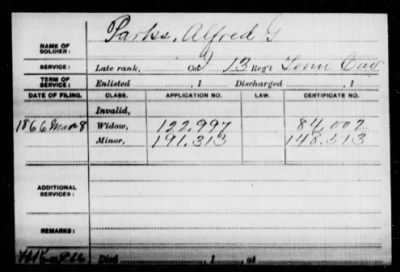 Parks, Alfred G
NAME OF SOLDIER:
SERVICE: Late rank, Co. G 13 Reg't Tenn Cav
TERM OF SERVICE: Enlisted , 1 Discharged , 1
DATE OF FILING. CLASS. APPLICATION NO. LAW. CERTIFICATE NO.
Invalid,
1866 Mar 8 Widow, 122.997 84.002
Minor, 191.313 148.513
ADDITIONAL SERVICES:
REMARKS:
Died , 1 , at